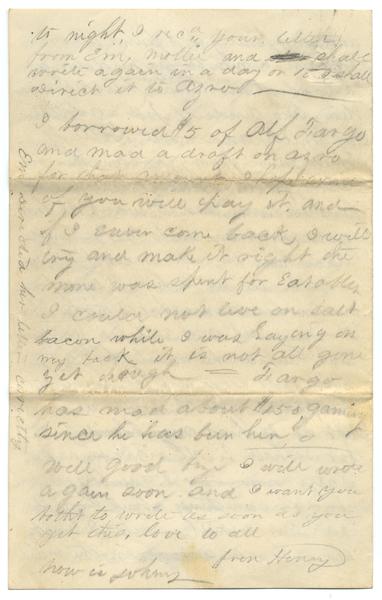 to night I recd your letter
from Em, Mollie and shall
write again in a day or so I shall
direct it to Azro
I borrowed $5 of Alf Fargo
and mad a draft on asro
for that
if you will pay it and
if I ever come back I will
try and make it right the
mone was spent for Eatables
I could not live on salt
bacon while I was Laying on
my back it is not all gone
yet though = Fargo
has mad about $150 gaming
since he has bin her
Well good bye I will wrote
a gain soon and I want you
to write as soon as you
get this, love to all
from Henry
how is
Em directed her letter